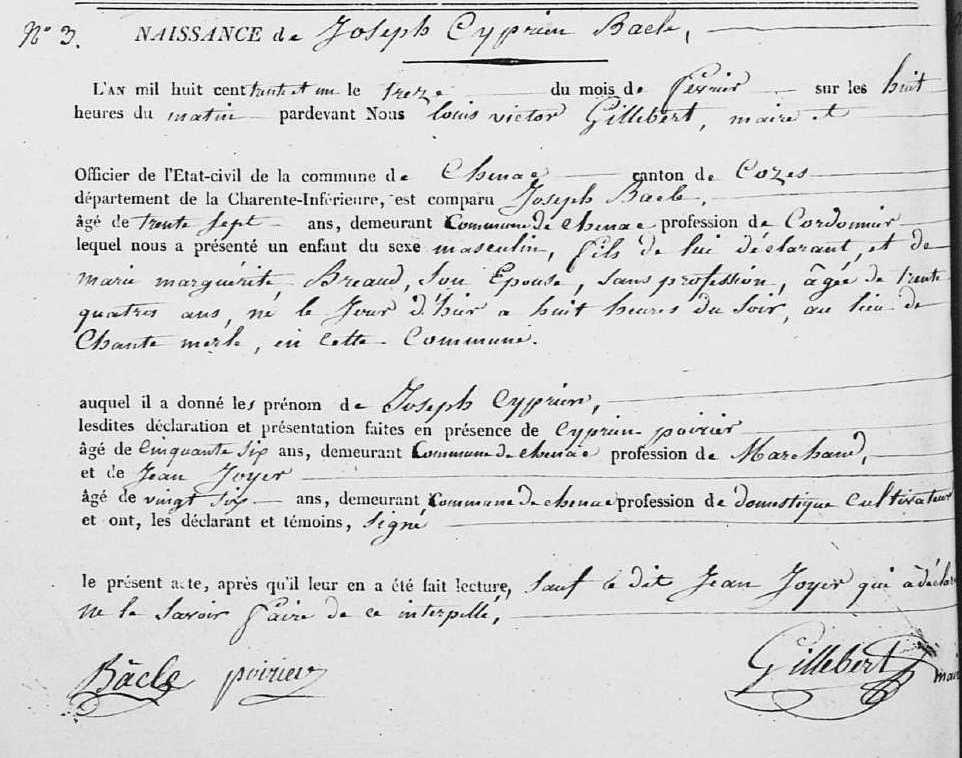 N° 3. NAISSANCE de Joseph Cyprien Bacle,
L'AN mil huit cent trente et un le treze du mois de février sur les huit
heures du matin pardevant Nous louis victor Gillebert, maire et
Officier de l'Etat-civil de la commune de Chenac canton de Cozes
département de la Charente-Inférieure, est comparu Joseph Bacle,
âgé de trente sept ans, demeurant Commune de chenac profession de Cordonnier
lequel nous a présenté un enfant du sexe masculin, fils de lui déclarant, et de
marie marguérite Breaud, Son Epouse, sans profession, âgée de trente
quatres ans, né le Jour d'hier a huit heures du Soir, au lieu de
Chante merle, en Cette Commune.
auquel il a donné les prénom de Joseph Cyprien,
lesdites déclaration et présentation faites en présence de Cyprien poirier
âgé de Cinquante Six ans, demeurant Commune de chenac profession de Marchand,
et de Jean Joyer
âgé de vingt six ans, demeurant Commune de chenac profession de domestique Cultivateur
et ont, les déclarant et témoins, signé
le présent acte, après qu'il leur en a été fait lecture, Sauf le dit Jean Joyer qui a déclaré
ne le Savoir faire de ce interpellé,
Bâcle poirier Gillebert maire